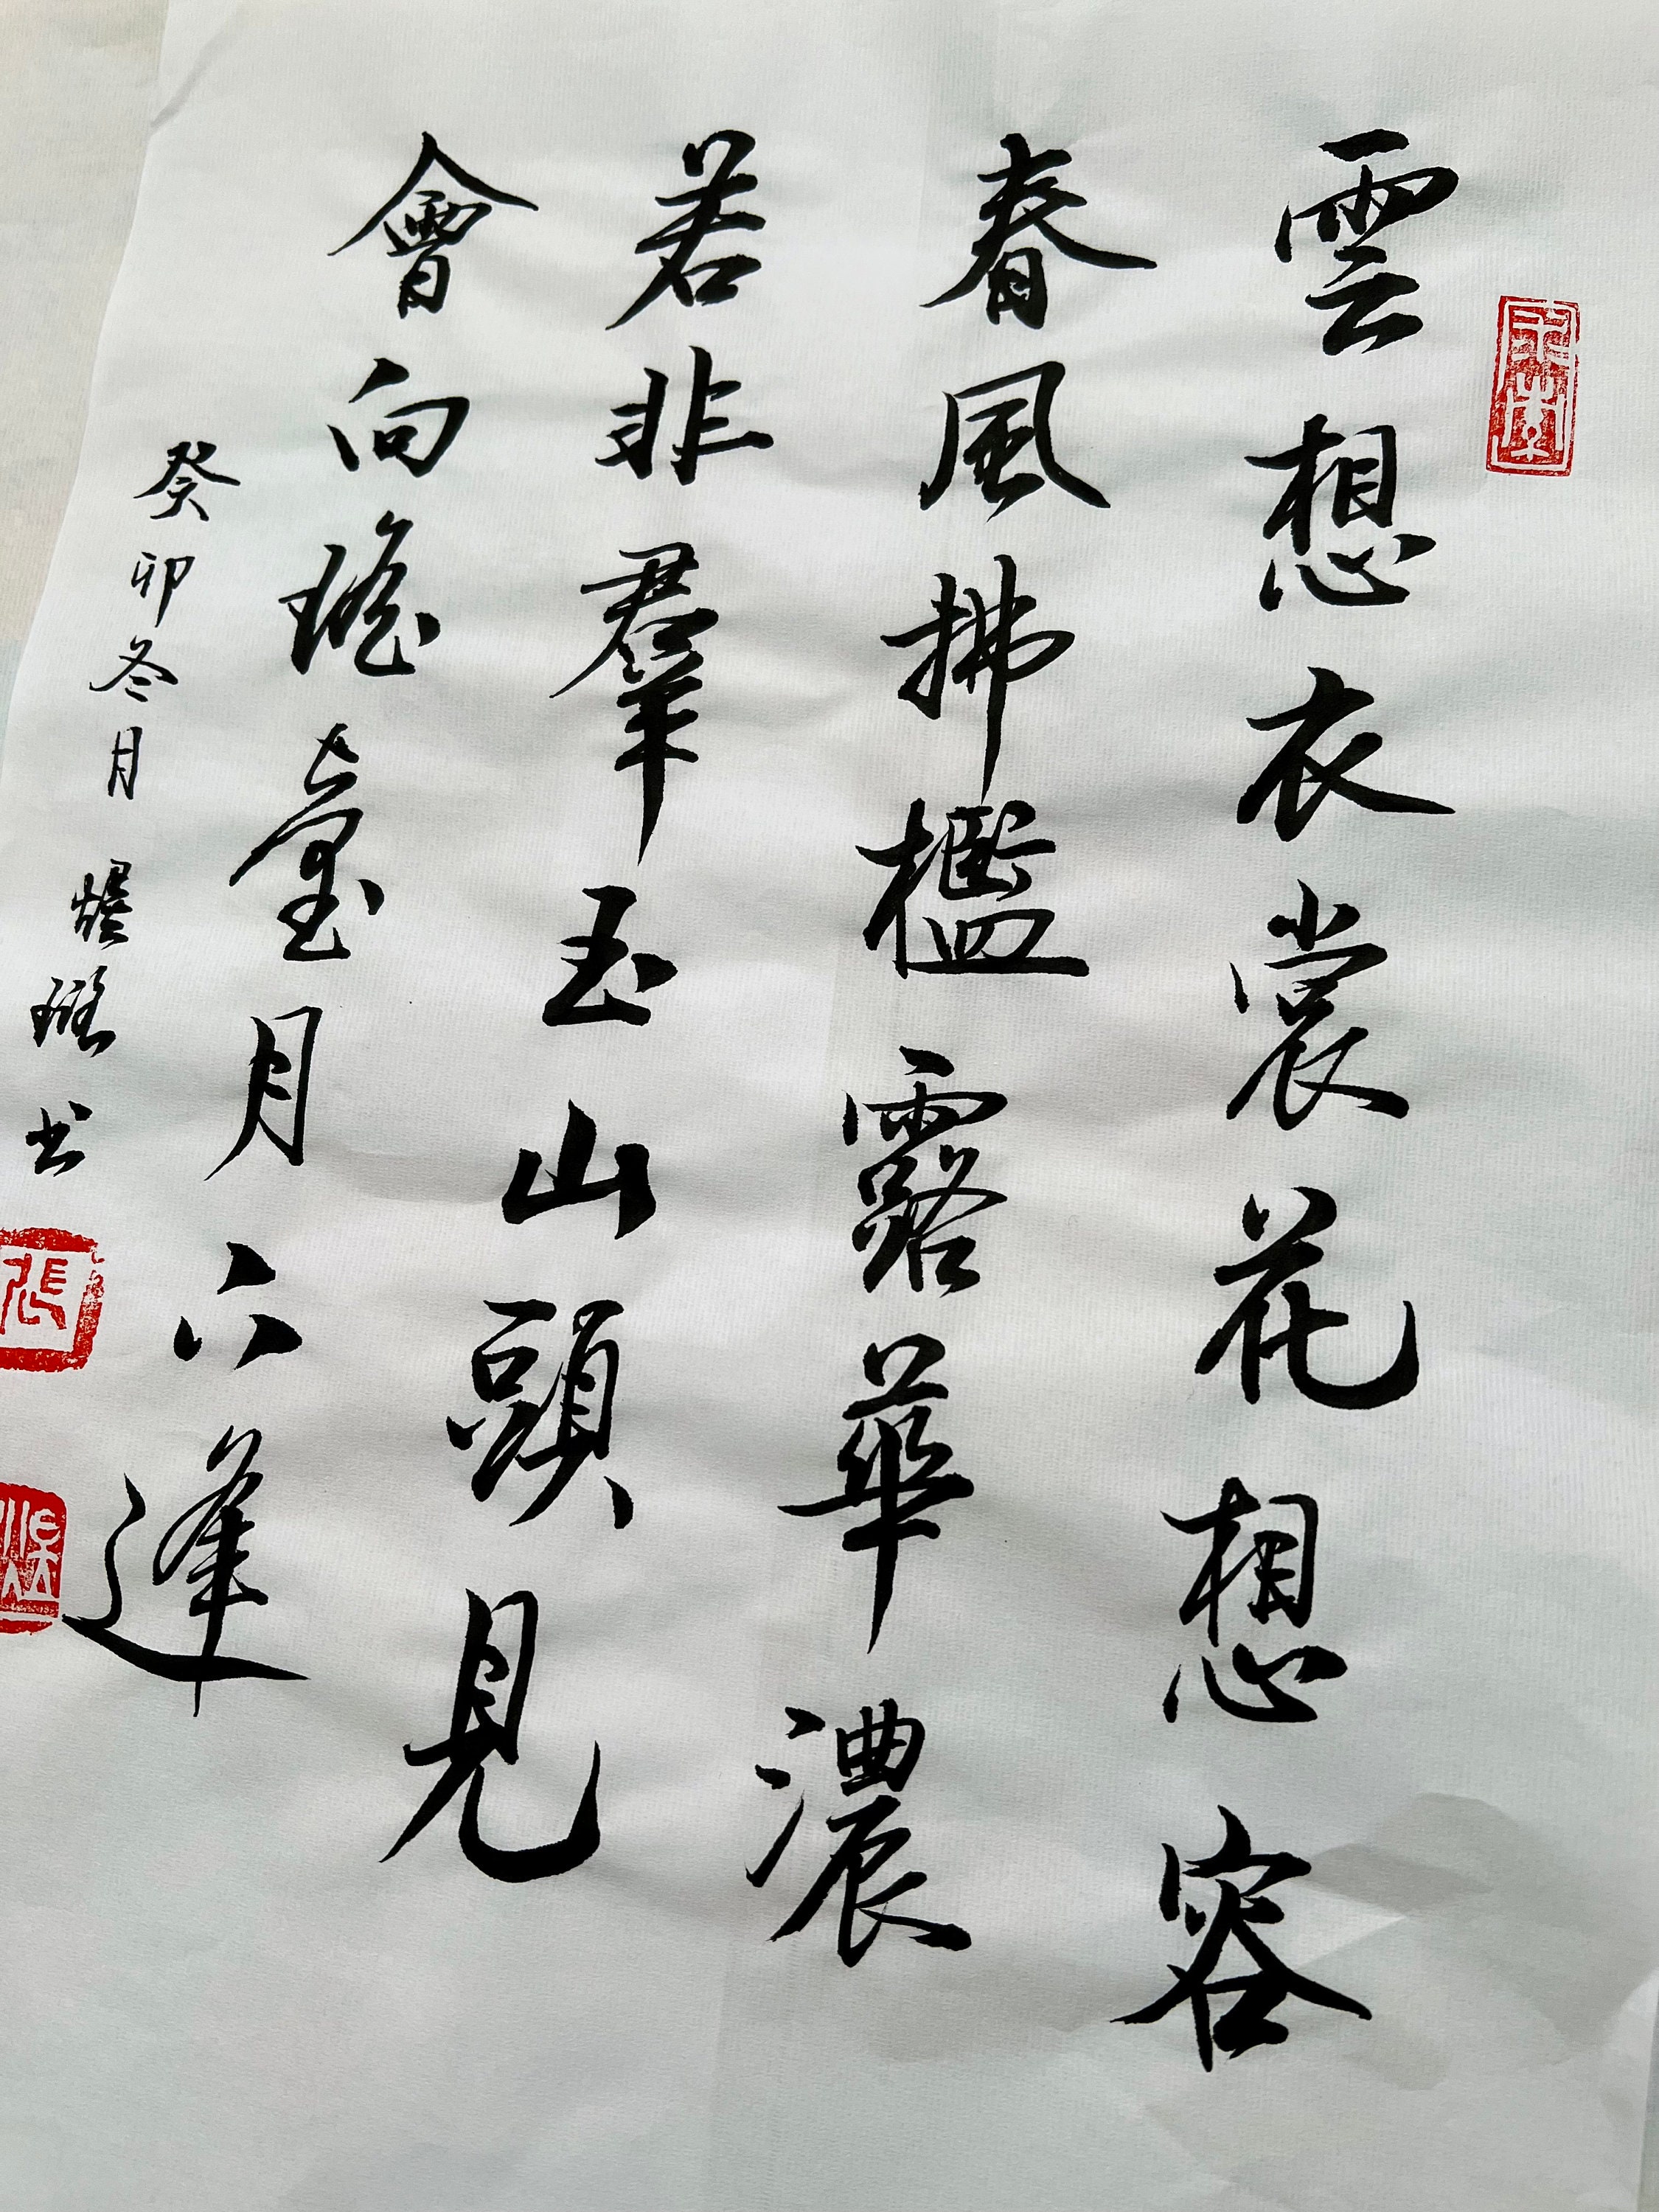 雲想衣裳花想容
春風拂檻露華濃
若非羣玉山頭見
會向瑤臺月下逢
癸卯冬月 煜璐书
張